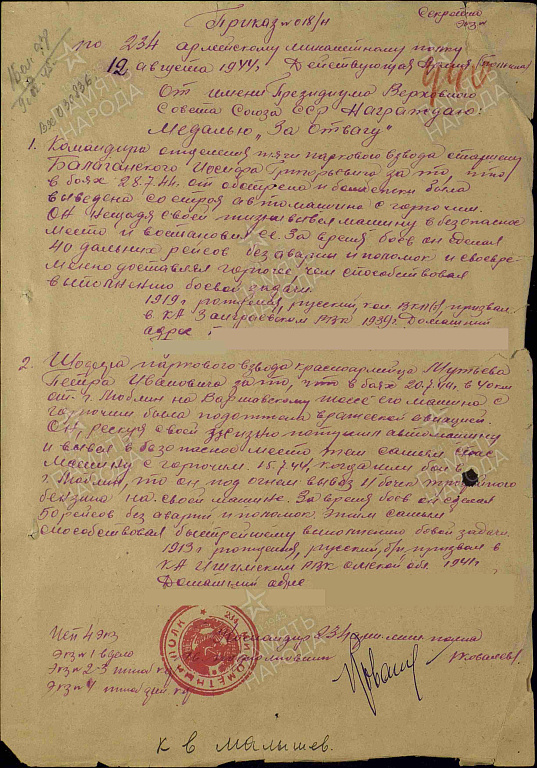 Секретно
Экз №
Приказ № 018/н
по 234 армейскому минометному полку
12 августа 1944г. Действующая Армия
От имени Президиума Верховного
Совета Союза ССР Награждаю:
Медалью „За Отвагу“
1. Командира отделения тяги паркового взвода старшину
Балаганского Иосифа Григорьевича за то, что
в боях 28.7.44. от обстрела и бомбежки была
выведена со строя автомашина с горючим.
Он нещадя своей жизни вывел машину в безопасное
место и востановил её. За время боёв он сделал
40 дальних рейсов без аварии и поломок и своевре
менно доставлял горючее, чем способствовал
выполнению боевой задачи.
1919г рождения, русский, ВКП(б), призван
в КА Заиграевским РВК 1939г. Домашний
адрес
2. Шофера паркового взвода красноармейца
Петра Ивановича за то, что в боях 20.7.44, в 40 км
от г. Люблин на Варшавскому шоссе его машина с
горючим была подожжена вражеской авиацией.
Он, рескуя своей жизнью потушил автомашину
и вывел в безопасное место тем самым спас
машину с горючим. 15.7.44, когда шли бои в
Люблин, то он под огнем вывез 11 бочек трофейного
бензина на своей машине. За время боев он сделал
рейсов без аварий и поломок. Этим самым
способствовал быстрейшему выполнению боевой задачи.
1913г рождения, русский, б/п, призван в
КА Ишимским РВК Омской обл. 1941г
Домашний адрес
Исп 4 экз
Экз № 1 в дело
Экз № 2-3
Экз № 4
Командир 234 арм. мин. полка
Ковалев
234 МИНОМЕТНЫЙ ПОЛК
К в Малышев.
ПАМЯТЬ
НАРОДА